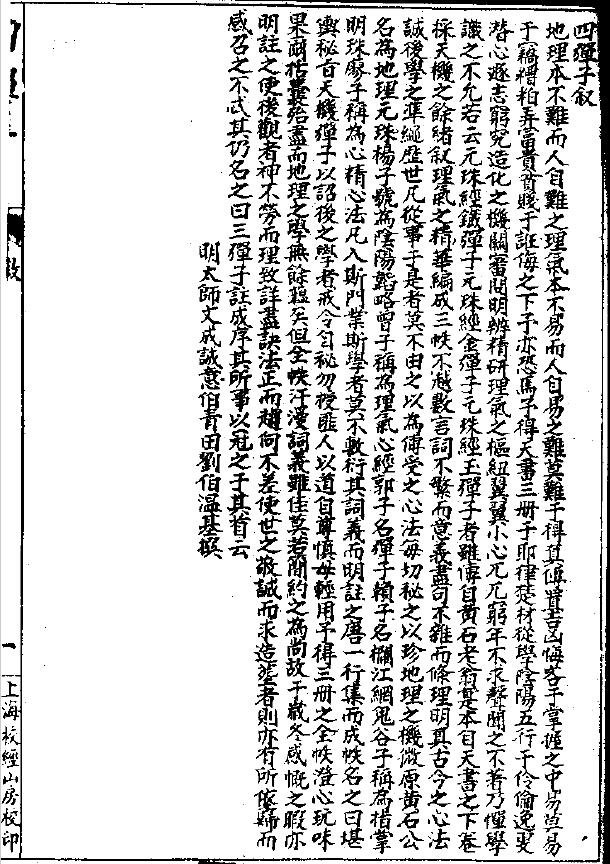 四彈子敘
地理本不難而人自難之理氣本不易而人自易之難莫難于得其傳貲吉凶悔吝于掌握之中易莫易
于竊糟粕弄富貴貧賤于誑侮之下予亦恐焉予得天書三册于耶律楚材從學陰陽五行于伶倫逸叟
潛心遜志窮究造化之機關審問明辨精研理氣之樞紐翼翼小心兀兀窮年不求聲聞之不著乃懂學
識之不允若云元珠經鐵彈子元珠經金彈子元珠經玉彈子者雖傳自黄石老翁是本自天書之下卷
採天機之餘緒敘理氣之精華編成三帙不越數言詞不繁而意義盡句不雜而條理明具古今之心法
誠後學之準繩歷世凡從事于是者莫不由之以為傳受之心法每切秘之以珍地理之機微原黄石公
名為地理元珠楊子號為陰陽韜略曾子稱為理氣心經郭子名彈子賴子名欄江網鬼谷子稱為措掌
明珠廖子稱為心精心法凡入斯門業斯學者莫不敷衍其詞義而明註之唐一行集而成帙名之曰堪
輿秘旨天機彈子以詔後之學者戒令自秘勿授匪人以道自尊慎毋輕用予得三册之全帙澄心玩味
果爾括囊殆盡而地理之學無餘蘊矣但全帙汗漫詞義雖佳莫若簡約之為尚故于歲冬感慨之暇亦
明註之使後觀者神不勞而理致詳盡訣法正而趨向不差使世之敬誠而求造塟者則亦有所依歸而
感召之不忒其仍名之曰三彈子註成序其所事以冠之于其首云
明太師文成誠意伯青田劉伯温基撰
敘
一
上海校經山房校印